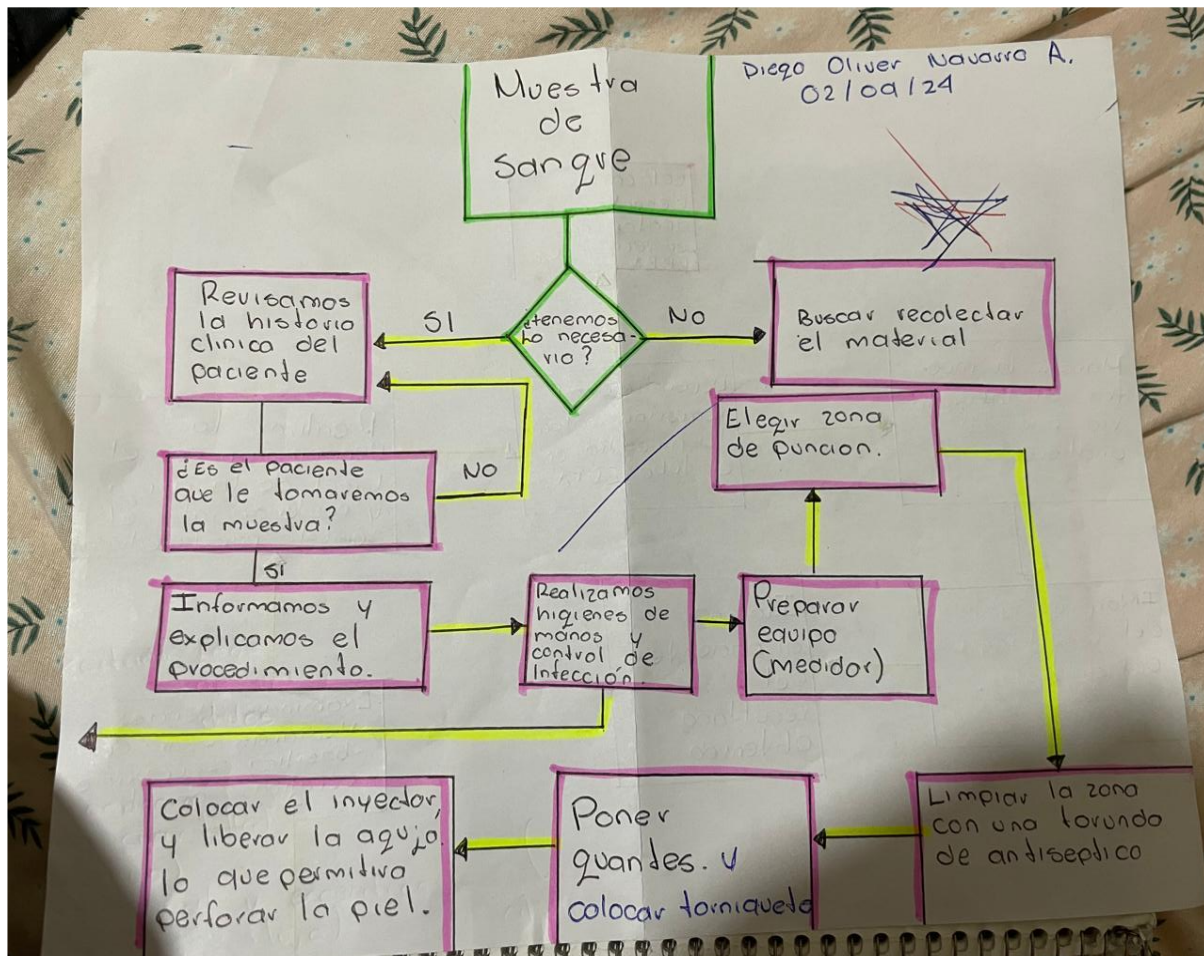 Diego Oliver Navarro A.
02/09/24
Muestra
de
sangre
¿tenemos
Lo necesa-
rio?
SI
NO
Revisamos
la historia
clinica del
paciente
Buscar recolectar
el material
¿Es el paciente
que le tomaremos
la muestra?
NO
SI
Elegir zona
de puncion.
Informamos y
explicamos el
procedimiento.
Realizamos
higienes de
manos y
control de
Infección.
Preparar
equipo
(medidor)
Limpiar la zona
con una torunda
de antiseptico
Poner
guantes. y
colocar torniquete
Colocar el inyector,
y liberar la aguja.
lo que permitira
perforar la piel.